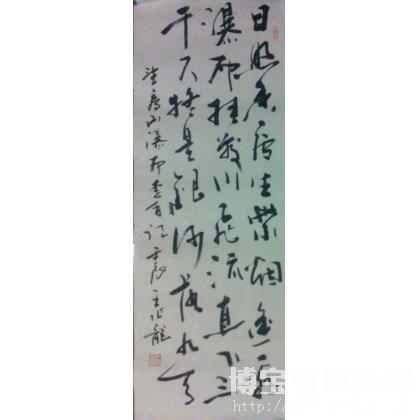 日照香庐生紫烟遥看
瀑布挂前川飞流直下三
千尺疑是银河落九天
望庐山瀑布李白诗 王作龍
博宝